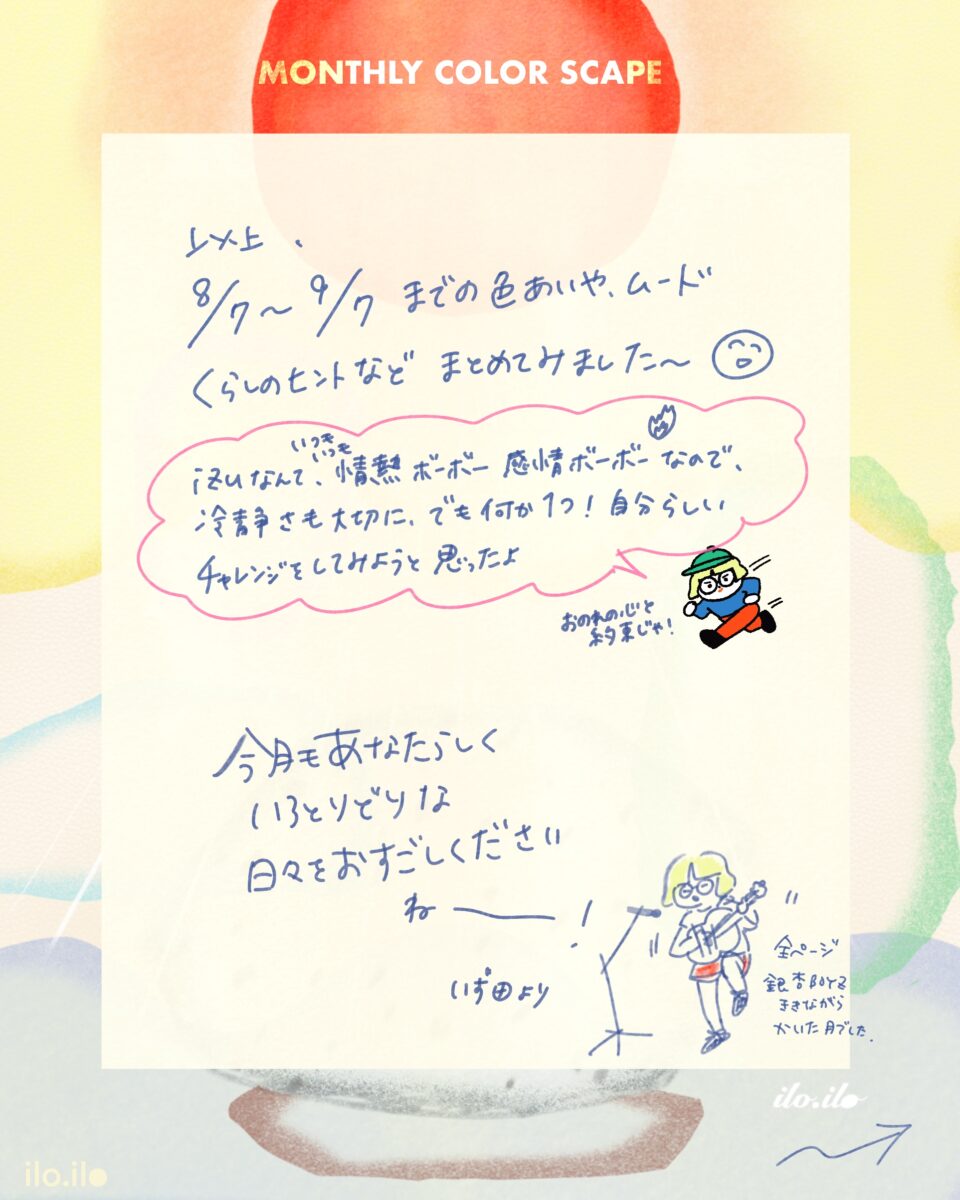 MONTHLY COLOR SCAPE
以上、
8/7〜9/7 までの色あいや、ムード
くらしのヒントなど まとめてみました〜
いつも
いつも
izuなんて、情熱ボーボー 感情ボーボーなので、
冷静さも大切に、でも何か1つ！自分らしい
チャレンジをしてみようと思ったよ
おのれの心と
約束じゃ！
今月もあなたらしく
いろとりどりな
日々をおすごしください
ねー！
いず田より
全ページ
銀杏BOYZ
ききながら
かいた月でした.
ilo.ilo
ilo.ilo